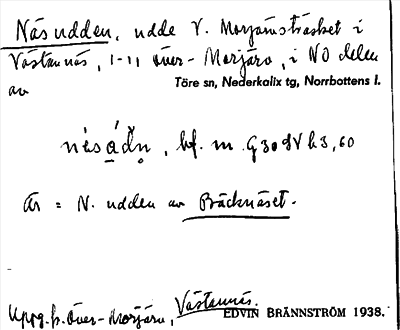 Näsudden, udde V. Morjärnsträsket i
Västannäs, 1-11 över-Morjärv, i NO delen
Töre sn, Nederkalix tg, Norrbottens l.
av
nèsáđn̥, bf. m. G30dVh3,60
Är = N. udden av Bäcknäset.
Uppg. fr. Över-Morjärv, Västannäs.
EDVIN BRÄNNSTRÖM 1938.